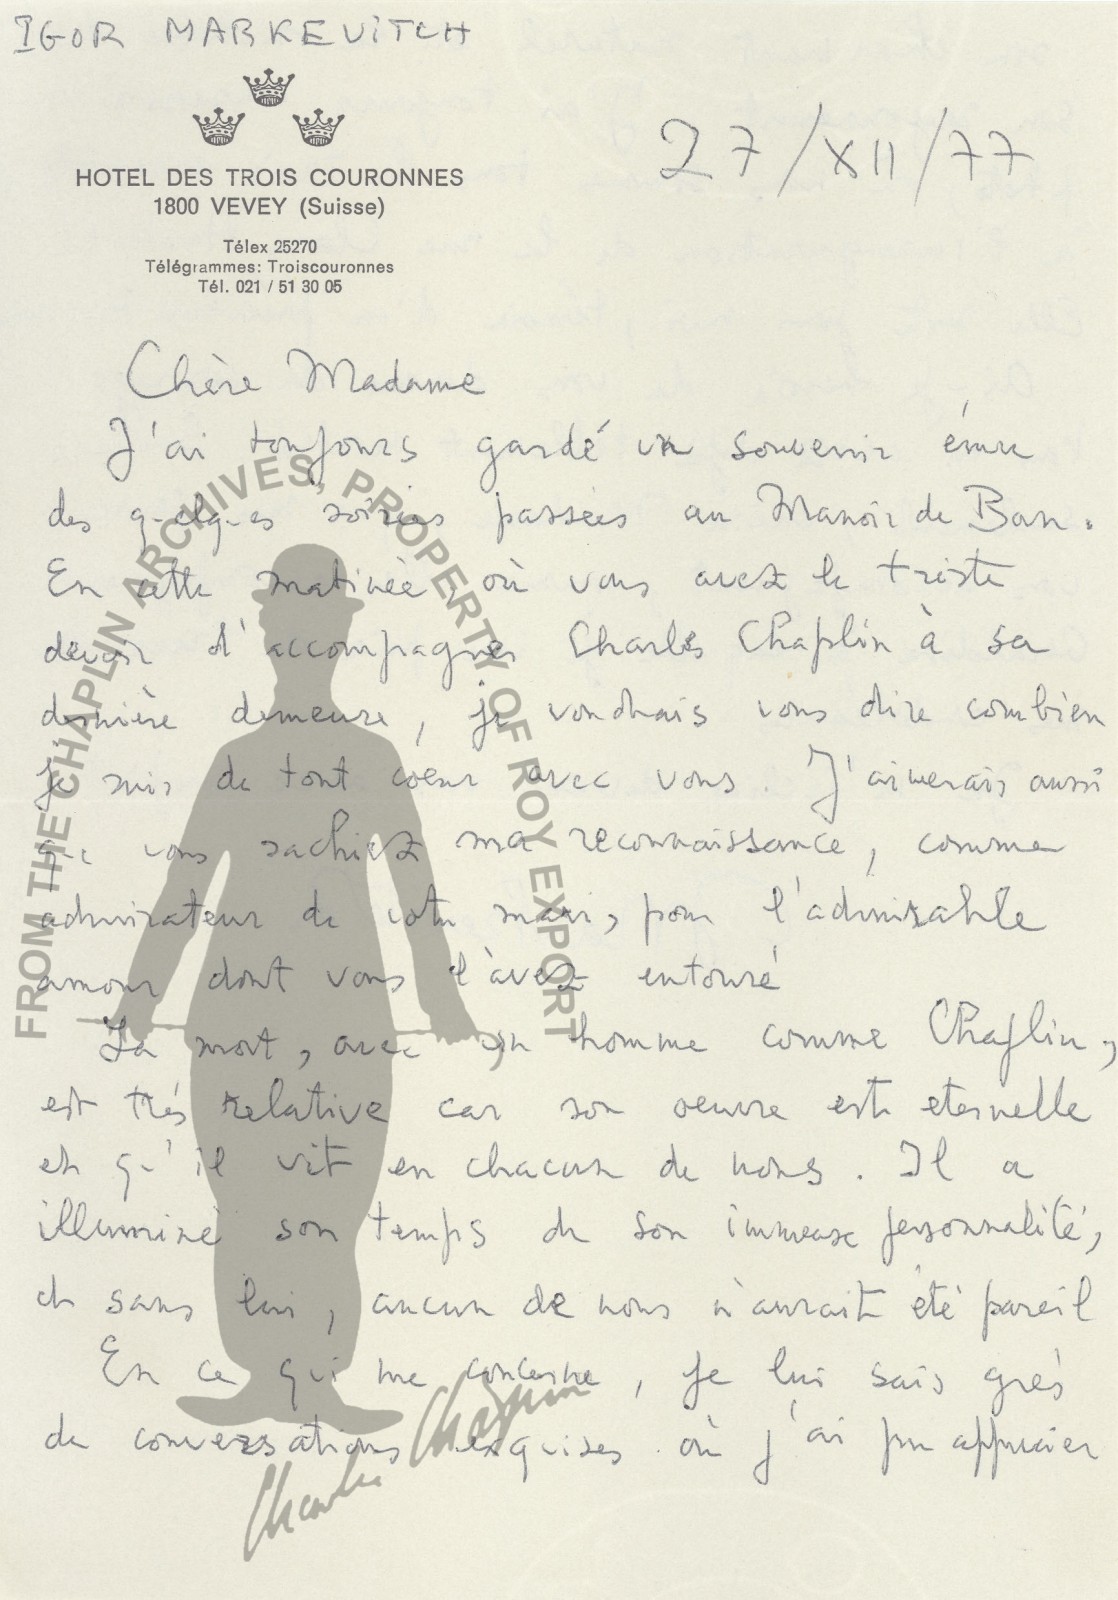 IGOR MARKEVITCH
HOTEL DES TROIS COURONNES
1800 VEVEY (Suisse)
Télex 25270
Télégrammes: Troiscouronnes
Tél. 021 / 51 30 05
27/XII/77
Chère Madame
J'ai toujours gardé un souvenir ému
des quelques soirées passées au Manoir de Ban.
En cette matinée, où vous avez le triste
devoir d'accompagner Charles Chaplin à sa
dernière demeure, je voudrais vous dire combien
je suis de tout coeur avec vous. J'aimerais aussi
que vous sachiez ma reconnaissance, comme
admirateur de votre mari, pour l'admirable
amour dont vous l'avez entouré
La mort, avec un homme comme Chaplin,
est très relative car son oeuvre est eternelle
et qu'il vit en chacun de nous. Il a
illuminé son temps de son immense personnalité,
et sans lui, aucun de nous n'aurait été pareil
En ce qui me concerne, je lui sais grès
de conversations exquises où j'ai pu apprécier
FROM THE CHAPLIN ARCHIVES, PROPERTY OF ROY EXPORT
Charlie Chaplin